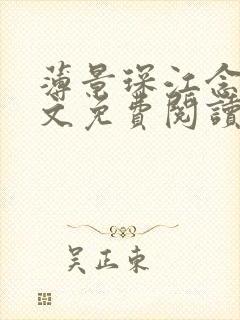 薄景琛江念
文免費閱讀
吴正東